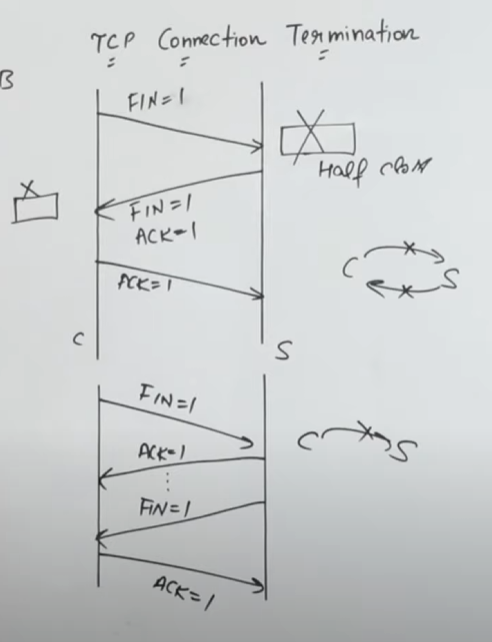 TCP Connection Termination
B
FIN=1
Half close
FIN=1
ACK=1
C S
ACK=1
C
S
FIN=1
C S
ACK=1
FIN=1
ACK=1